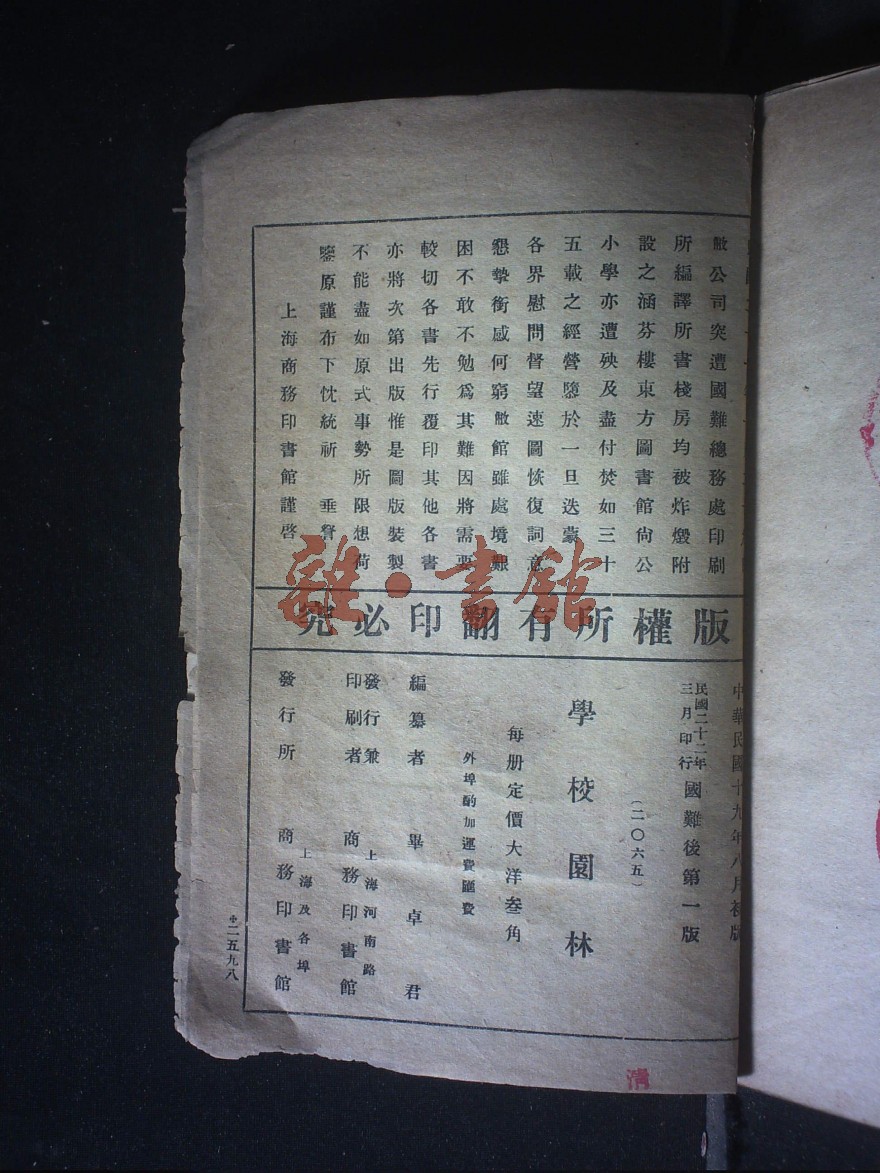 敝公司突遭國難總務處印刷
所編譯所書棧房均被炸燬附
設之涵芬樓東方圖書館尙公
小學亦遭殃及盡付焚如三十
五載之經營隳於一旦迭蒙
各界慰問督望速圖恢復詞意
懇摯銜感何窮敝館雖處境艱
困不敢不勉爲其難因將需要
較切各書先行覆印其他各書
亦將次第出版惟是圖版裝製
不能盡如原式事勢所限想荷
鑒原謹布下忱統祈 垂詧
上海商務印書館謹啓
版權所有翻印必究
中華民國十九年八月初版
民國二十二年三月印行
國難後第一版
(二〇六五)
學校園林
每册定價大洋叁角
外埠酌加運費匯費
編纂者 畢卓君
發行兼印刷者
上海河南路
商務印書館
上海及各埠
發行所 商務印書館
二五九八
雜·書館
清